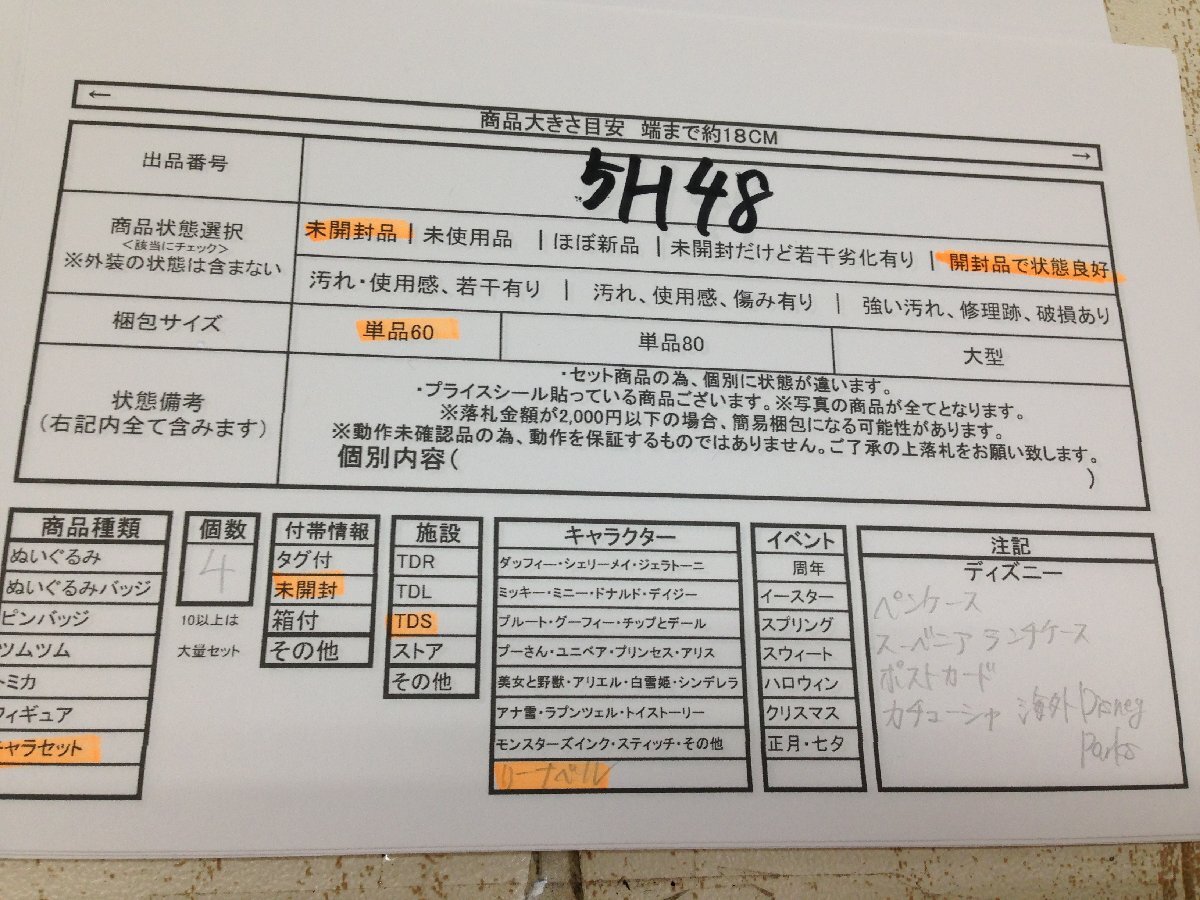 ←
商品大きさ目安 端まで約18CM
→
出品番号
5H48
商品状態選択
<該当にチェック>
※外装の状態は含まない
未開封品 | 未使用品 | ほぼ新品 | 未開封だけど若干劣化有り | 開封品で状態良好
汚れ・使用感、若干有り | 汚れ、使用感、傷み有り | 強い汚れ、修理跡、破損あり
梱包サイズ
単品60
単品80
大型
状態備考
(右記内全て含みます)
・セット商品の為、個別に状態が違います。
・プライスシール貼っている商品ございます。※写真の商品が全てとなります。
※落札金額が2,000円以下の場合、簡易梱包になる可能性があります。
※動作未確認品の為、動作を保証するものではありません。ご了承の上落札をお願い致します。
個別内容(
)
商品種類
ぬいぐるみ
ぬいぐるみバッジ
ピンバッジ
ツムツム
トミカ
フィギュア
キャラセット
個数
4
10以上は
大量セット
付帯情報
タグ付
未開封
箱付
その他
施設
TDR
TDL
TDS
ストア
その他
キャラクター
ダッフィー・シェリーメイ・ジェラトーニ
ミッキー・ミニー・ドナルド・デイジー
プルート・グーフィー・チップとデール
プーさん・ユニベア・プリンセス・アリス
美女と野獣・アリエル・白雪姫・シンデレラ
アナ雪・ラプンツェル・トイストーリー
モンスターズインク・スティッチ・その他
リーナベル
イベント
周年
イースター
スプリング
スウィート
ハロウィン
クリスマス
正月・七夕
注記
ディズニー
ペンケース
スーベニア ランチケース
ポストカード
カチューシャ 海外 Disney
Parks